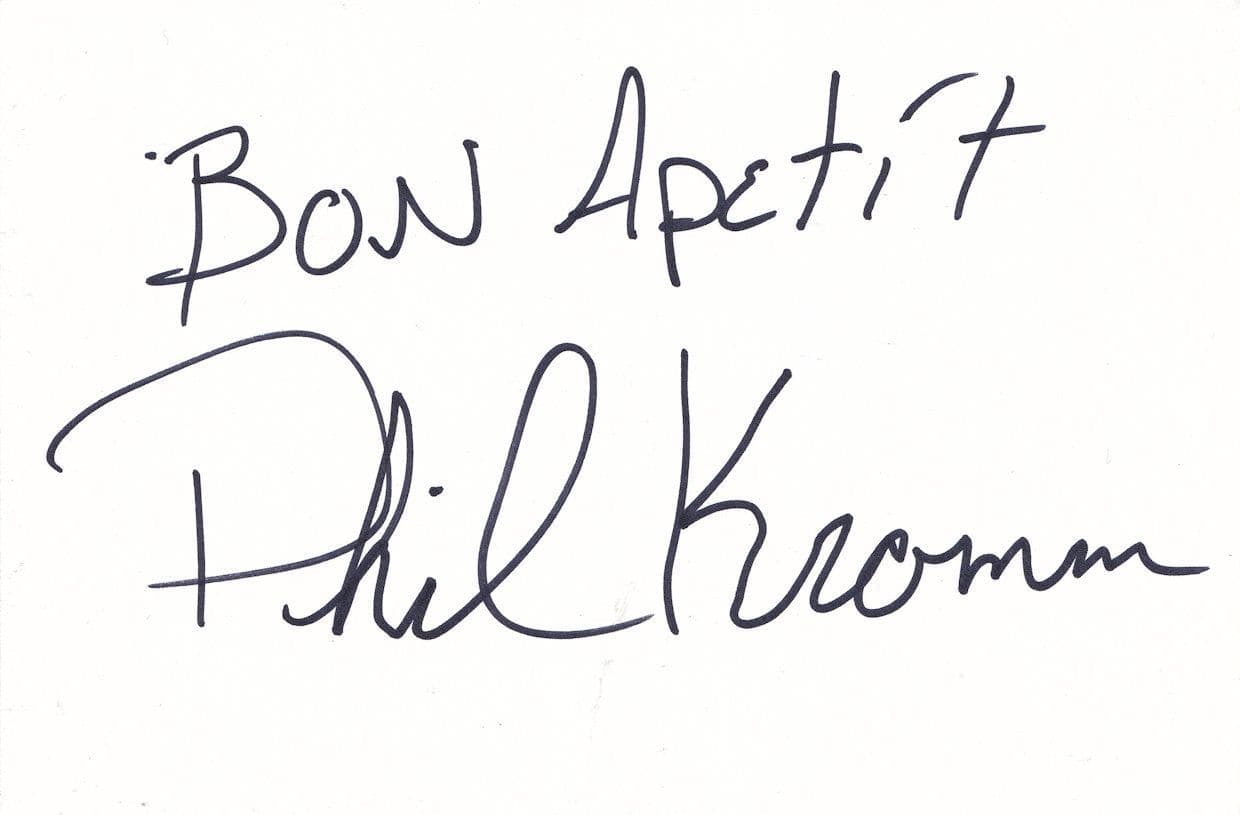 Bon Apetít
Phil Kromm